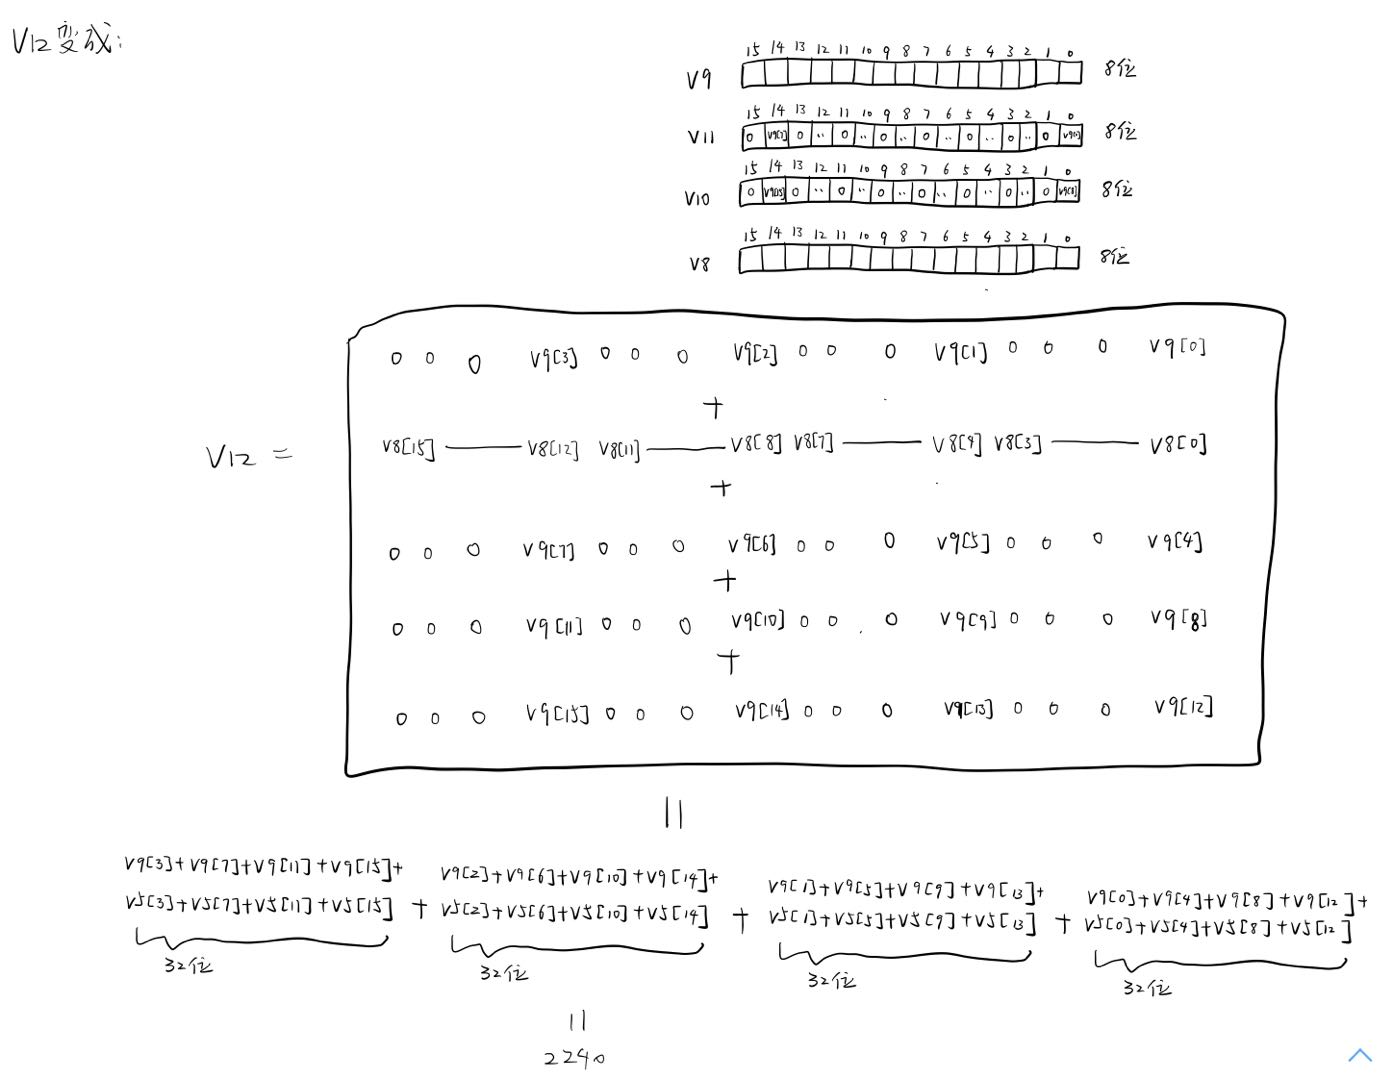 V12变成:
15 14 13 12 11 10 9 8 7 6 5 4 3 2 1 0
V9 8位
15 14 13 12 11 10 9 8 7 6 5 4 3 2 1 0
V11 0 0 .. 0 .. 0 .. 0 .. 0 .. 0 .. 0 8位
15 14 13 12 11 10 9 8 7 6 5 4 3 2 1 0
V10 0 0 .. 0 .. 0 .. 0 .. 0 .. 0 .. 0 8位
15 14 13 12 11 10 9 8 7 6 5 4 3 2 1 0
V8 8位
0 0 0 V9[3] 0 0 0 V9[2] 0 0 0 V9[1] 0 0 0 V9[0]
+
V12 = V8[15] — V8[12] V8[11] — V8[8] V8[7] — V8[4] V8[3] — V8[0]
+
0 0 0 V9[7] 0 0 0 V9[6] 0 0 0 V9[5] 0 0 0 V9[4]
+
0 0 0 V9[11] 0 0 0 V9[10] 0 0 0 V9[9] 0 0 0 V9[8]
+
0 0 0 V9[15] 0 0 0 V9[14] 0 0 0 V9[13] 0 0 0 V9[12]
||
V9[3]+V9[7]+V9[11]+V9[15]+
V5[3]+V5[7]+V5[11]+V5[15]
32位
+
V9[2]+V9[6]+V9[10]+V9[14]+
V5[2]+V5[6]+V5[10]+V5[14]
32位
+
V9[1]+V9[5]+V9[9]+V9[13]+
V5[1]+V5[5]+V5[9]+V5[13]
32位
+
V9[0]+V9[4]+V9[8]+V9[12]+
V5[0]+V5[4]+V5[8]+V5[12]
32位
||
2240